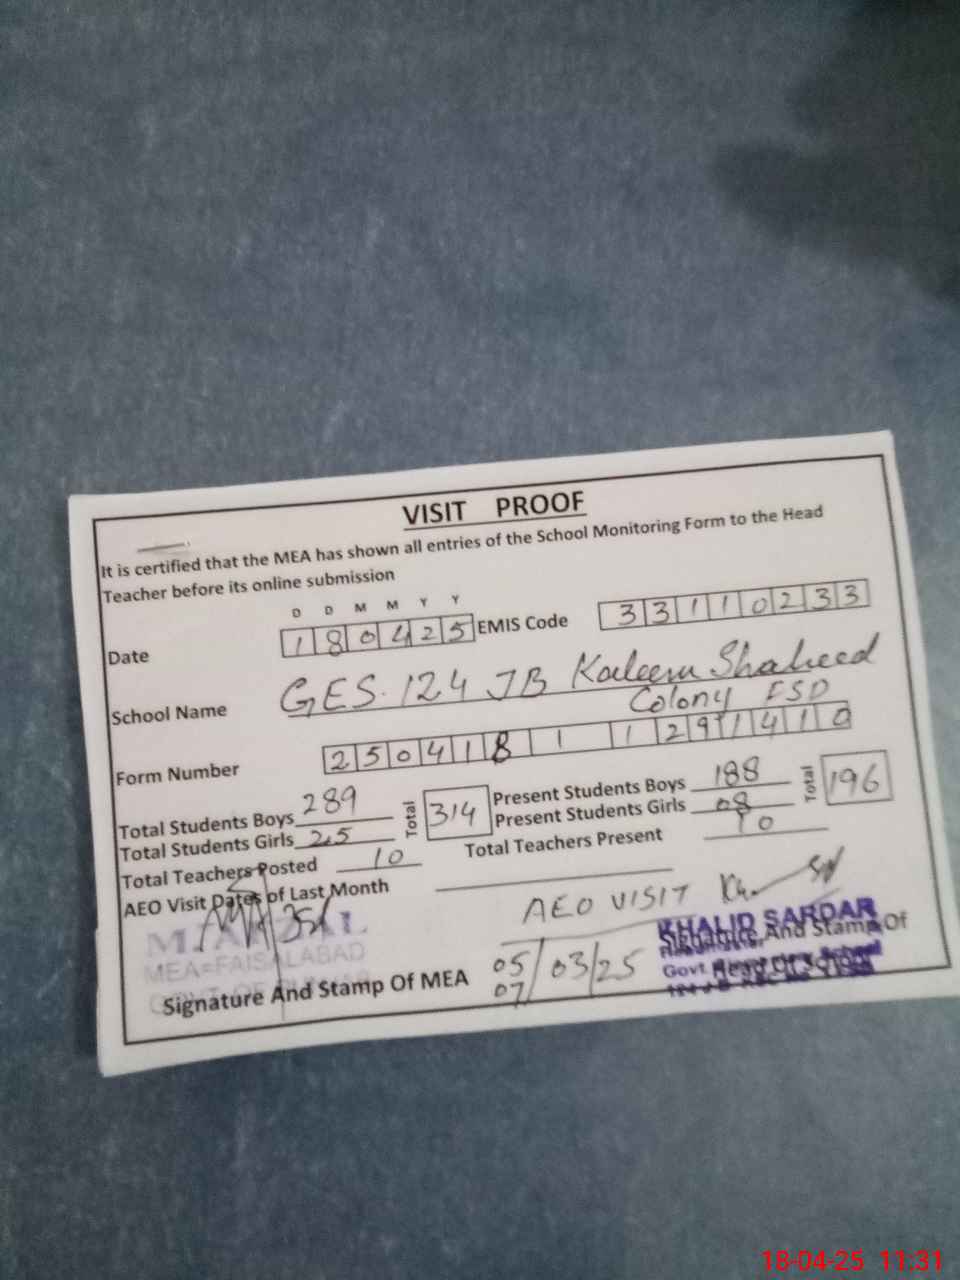 VISIT PROOF
It is certified that the MEA has shown all entries of the School Monitoring Form to the Head
Teacher before its online submission
D D M M Y Y
Date 180425 EMIS Code 33110233
School Name GES. 124 JB Kaleem Shaheed
Colony FSD
Form Number 250418 1 1291410
Total Students Boys 289 Total 314 Present Students Boys 188 Total 196
Total Students Girls 25 Present Students Girls 08
Total Teachers Posted 10 Total Teachers Present 10
AEO Visit Dates of Last Month
AEO VISIT
KHALID SARDAR
MEA=FAISALABAD
Signature And Stamp Of
Govt. School
Head
Signature And Stamp Of MEA 05/03/25
07
18-04-25 11:31